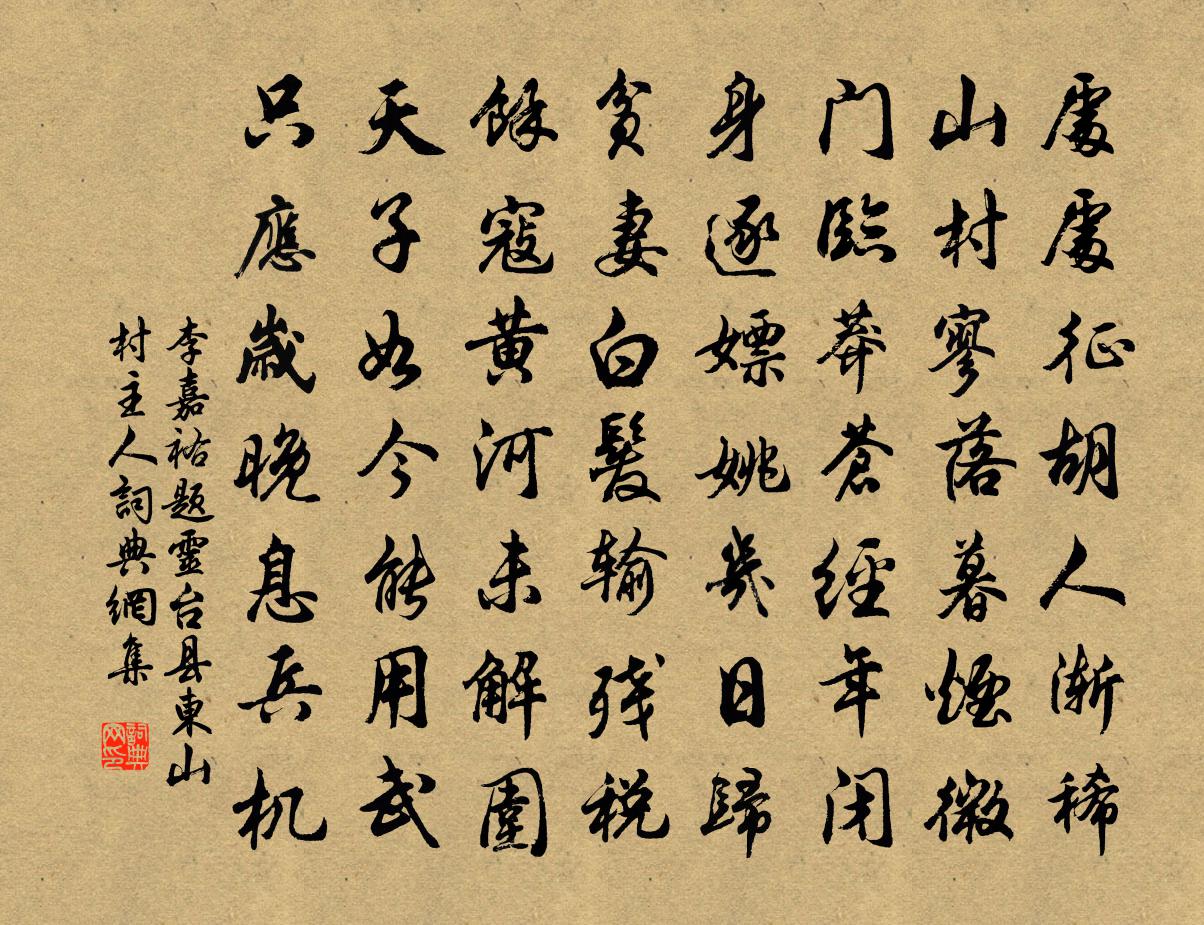 處處征胡人漸稀
山村寥落暮煙微
门臨莽蒼經年闭
身逐嫖姚幾日歸
貧妻白髮输残税
餘寇黄河未解圍
天子如今能用武
只應歲晚息兵机
李嘉祐题靈台县東山
村主人詞典網集
詞典网印